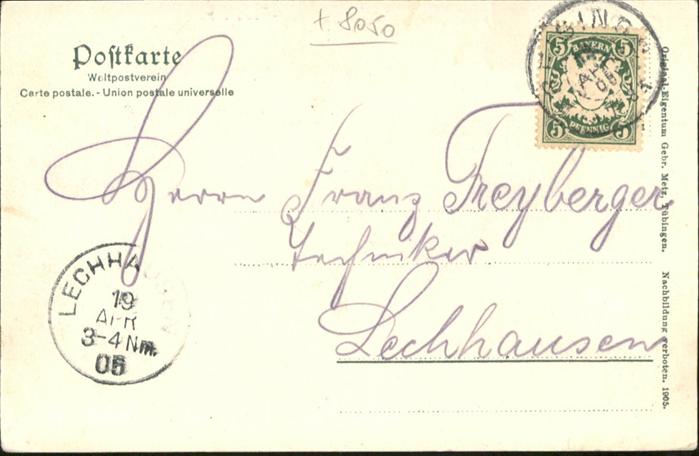 + 8050
Postkarte
Weltpostverein
Carte postale. - Union postale universelle
5 BAYERN 5
5 PFENNIG 5
Herrn Franz Freyberger
Techniker
Lechhausen
LECHHA
19
APR
3-4 Nm.
05
Original-Eigentum Gebr. Metz, Tübingen. Nachbildung verboten. 1905.